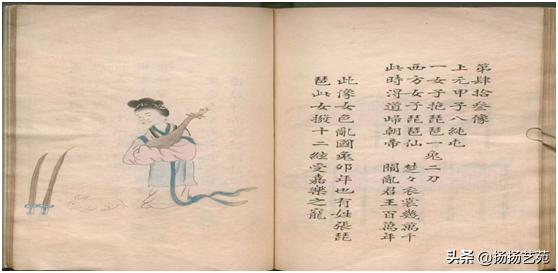 第肆拾叁像
上元甲子八純
一女子抱琵琶一兔二刀
西方女子琵琶仙　楚々衣裳幾萬千
此時得道歸朝帝　閙亂君王百萬年
此像女色亂國象卯年也有姓張琵
琶此女撥十二絃受嘉樂之寵
头条 @扬扬艺苑